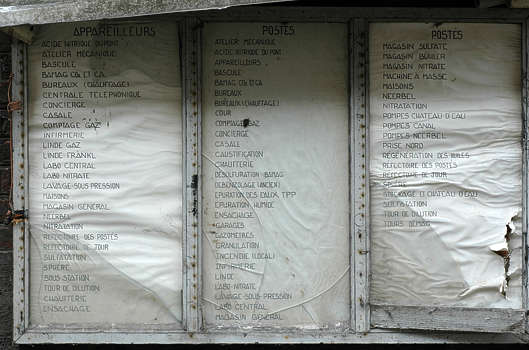 APPAREILLEURS
ACIDE NITRIQUE DUPONT
ATELIER MECANIQUE
BASCULE
BAMAG CG ET CA
BUREAUX (CHAUFFAGE)
CENTRALE TELEPHONIQUE
CONCIERGE
CASALE
COMPTAGE GAZ
INFIRMERIE
LINDE GAZ
LINDE FRANKL
LABO CENTRAL
LABO NITRATE
LAVAGE SOUS PRESSION
MAISONS
MAGASIN GENERAL
NEERBEL
NITRATATION
REFECTOIRE DES POSTES
REFECTOIRE DE JOUR
SULFATATION
SPHERE
SOUS STATION
TOUR DE DILUTION
CHAUFFERIE
ENSACHAGE
POSTES
ATELIER MECANIQUE
ACIDE NITRIQUE DU PONT
APPAREILLEURS
BASCULE
BAMAG CG ET CA
BUREAUX
BUREAUX (CHAUFFAGE)
COUR
COMPTAGE GAZ
CONCIERGE
CASALE
CAUSTIFICATION
CHAUFFERIE
DESULFURATION BAMAG
DEBENZOLAGE (ANCIEN)
EPURATION DES EAUX TPP
EPURATION HUMIDE
ENSACHAGE
GARAGES
GAZOMETRES
GRANULATION
INCENDIE (LOCAL)
INFIRMERIE
LINDE
LABO-NITRATE
LAVAGE-SOUS-PRESSION
LABO CENTRAL
MAGASIN GENERAL
POSTES
MAGASIN SULFATE
MAGASIN BÜHLER
MAGASIN NITRATE
MACHINE A MASSE
MAISONS
NEERBEL
NITRATATION
POMPES CHATEAU D'EAU
POMPES CANAL
POMPES NEERBEL
PRISE NORD
REGENERATION DES HUILES
REFECTOIRE DES POSTES
REFECTOIRE DE JOUR
SPHERE
STOCKAGE CHATEAU D'EAU
SULFATATION
TOUR DE DILUTION
TOURS DEMAG